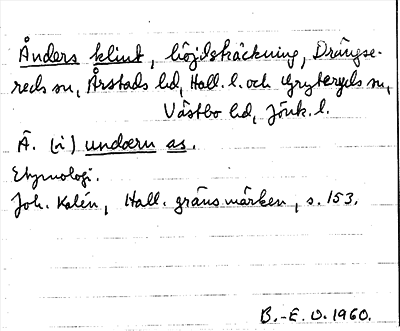 Ånders klint, höjdsträckning, Drängse-
reds sn, Årstads hd, Hall. l. och Gryteryds sn,
Västbo hd, Jönk. l.
Å. (i) undorn as.
Etymologi.
Joh. Kalén, Hall. gränsmärken, s. 153.
B.-E. O. 1960.